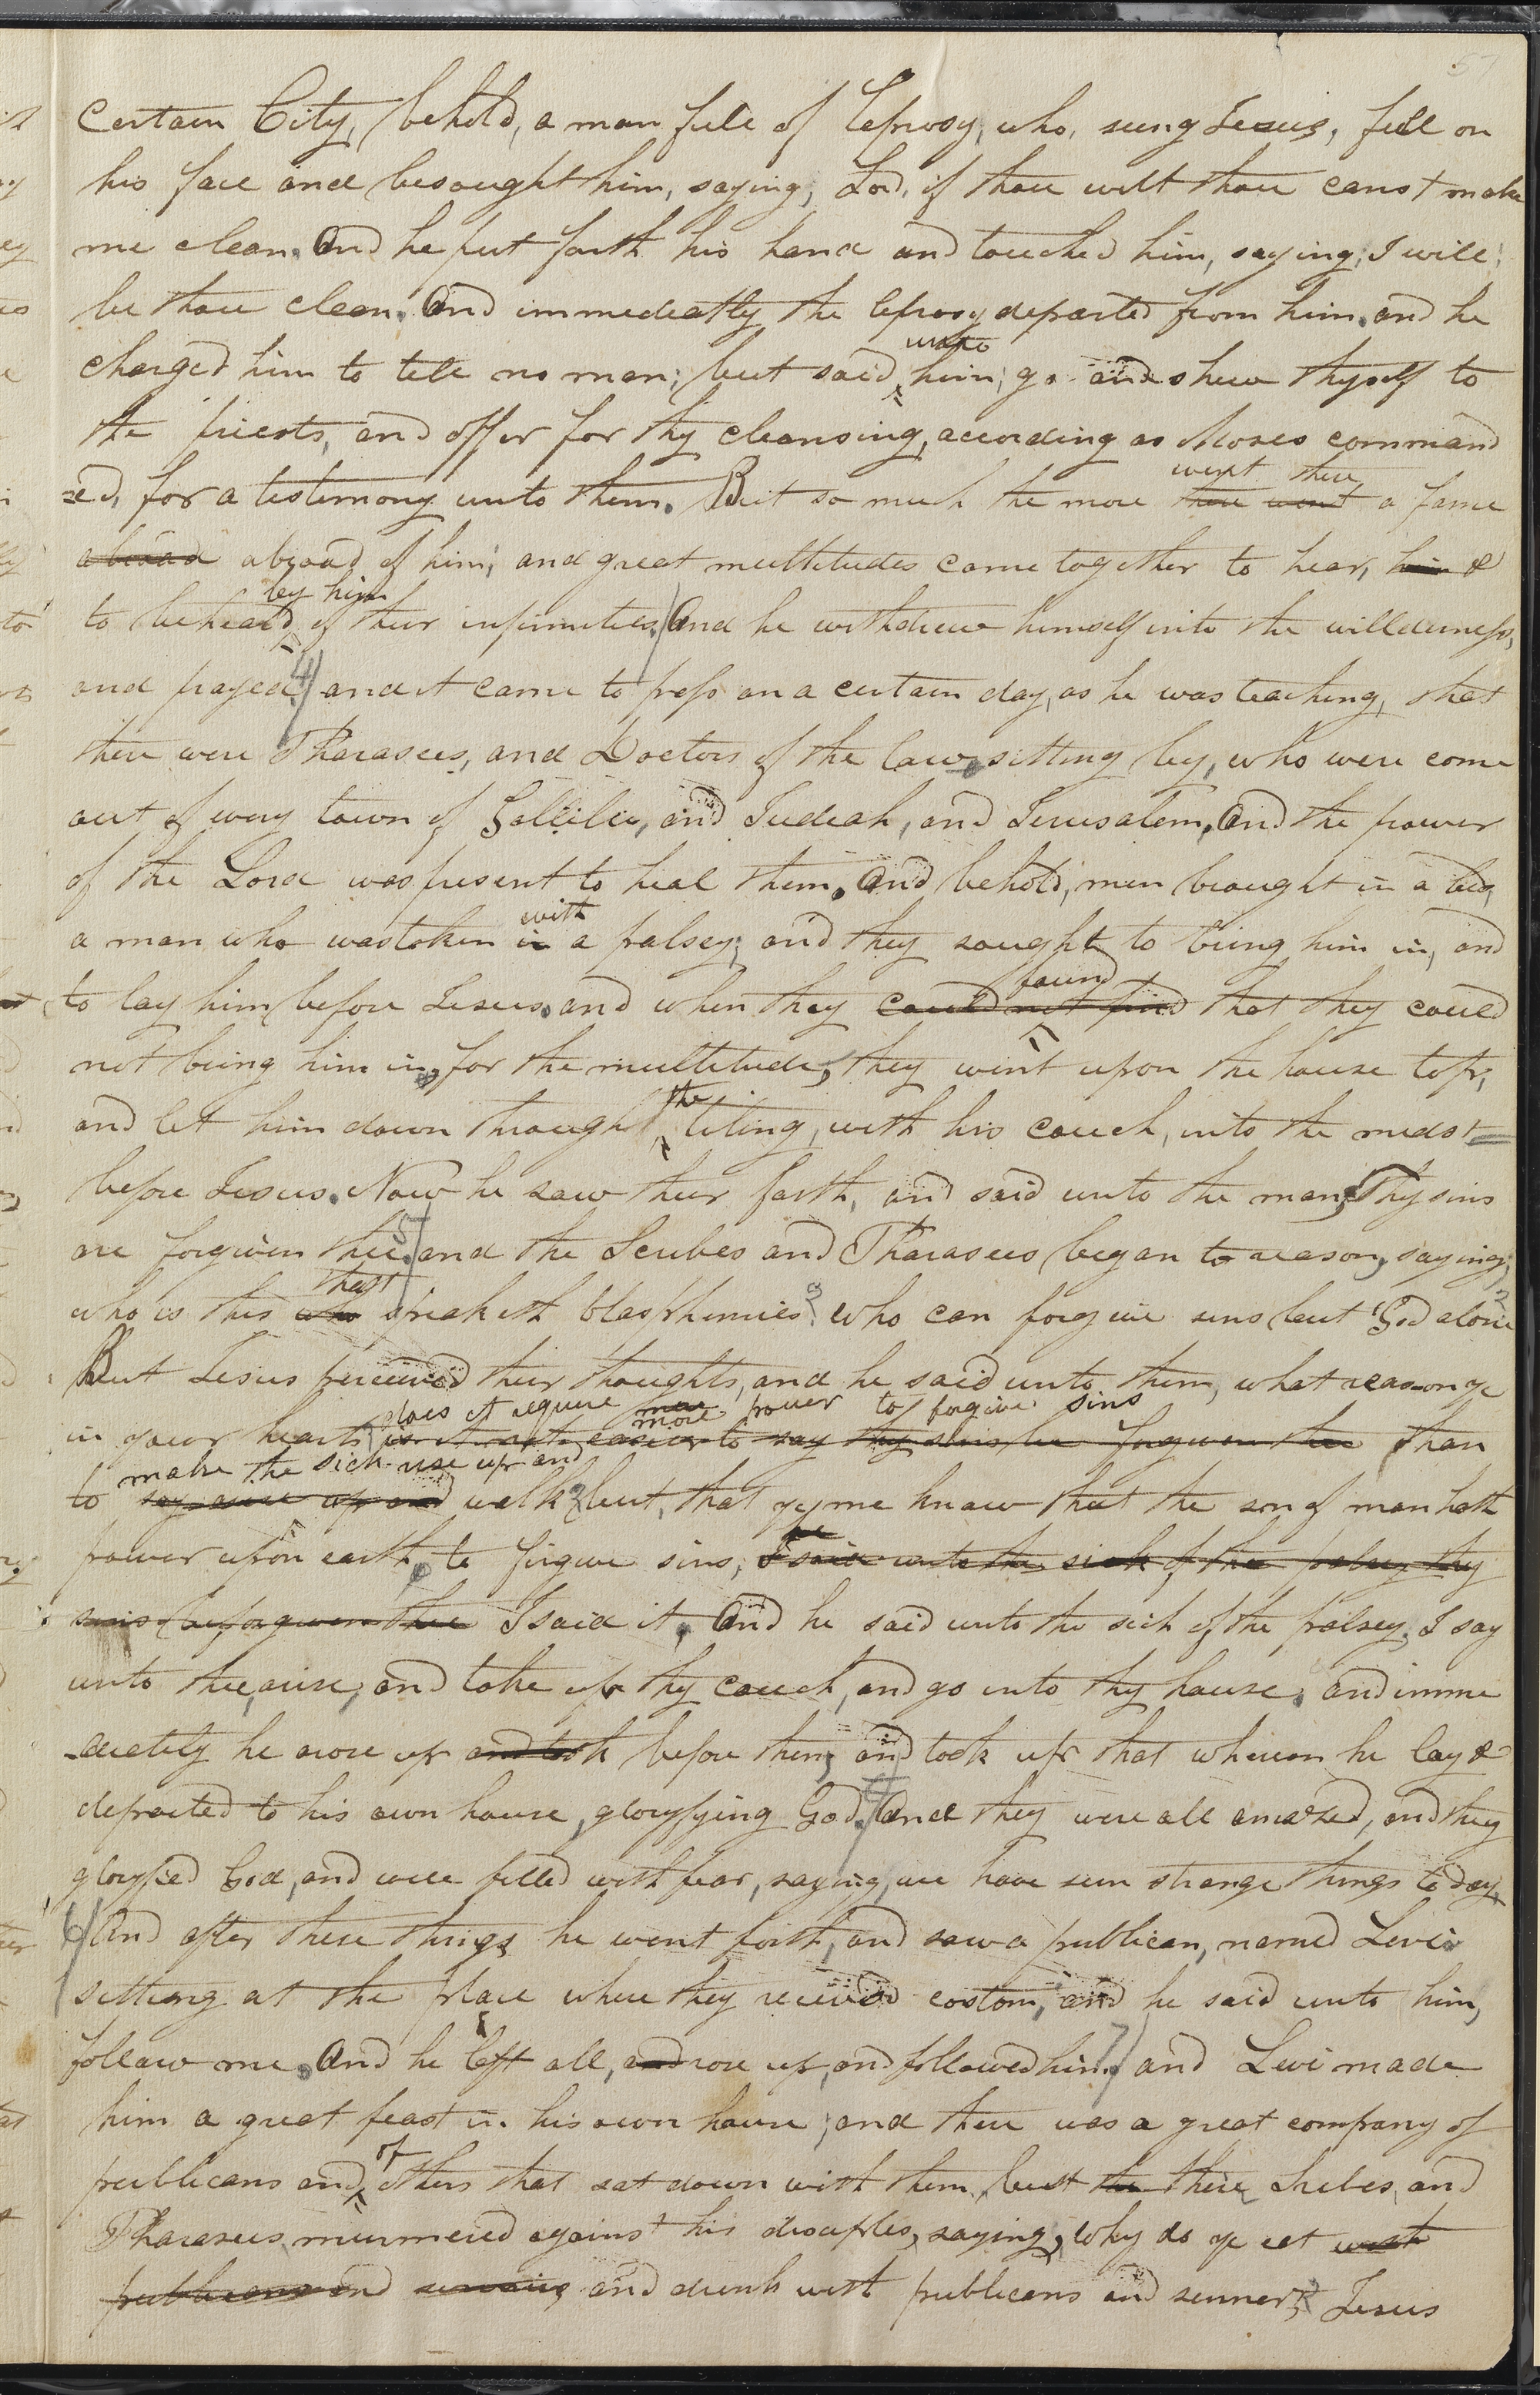 57
certain City, behold, a man full of leprosy, who, seing Jesus, fell on
his face and besaught him, saying, Lord, if thou wilt thou canst make
me clean. And he put forth his hand and touched him, saying; I will;
be thou clean. And immedeatly the leprosy departed from him. and he
unto
charged him to tell no man; but said, him, go and shew thyself to
the priests, and offer for thy cleansing, according as Moses command
ed, for a testimony unto them. But so much the more there went a fame
went there
abroad abroad of him; and great multitudes came together to hear, him &
by him
to be heald of their infirmities. And he withdrew himself into the willderness,
and prayed. 4 and it came to pass on a certain day, as he was teaching, that
there were Pharasees, and Doctors of the law, sitting by, who were come
out of every town of Gallilee, and Judeah, and Jerusalem. And the power
of the Lord was present to heal them. And behold, men braught in a bed,
with
a man who was taken in a palsey; and they saught to bring him in, and
found
to lay him before Jesus. and when they could not find that they could
not bring him in, for the multitude, they went upon the house top,
the
and let him down through tiling, with his couch, into the midst
before Jesus. Now he saw their faith, and said unto the man, Thy sins
are forgiven thee. 5 and the Scribes and Pharasees began to reason, saying,
that
who is this who speaketh blasphemies? who can forgive sins but God alone?
But Jesus perceived their thoughts, and he said unto them, what reason ye
does it require more more power to forgive sins
in your hearts is it not easier to say thy sins be forgiven thee than
make the sick rise up and
to say arise up and walk? but, that ye me know that the son of man hath
he
power upon earth to forgive sins, I said unto the sick of the palsey thy
sins be forgiven thee I said it. And he said unto the sick of the palsey, I say
unto thee, arise, and take up thy couch, and go unto thy house. and imme
-deately he arose up and took before them, and took up that whereon he lay &
departed to his own house, gloryfying God. And they were all amazed, and they
glorified God, and were filled with fear, saying, we have seen strange things to day,
6 And after these things he went forth, and saw a publican, named Levi
sitting at the place where they received costom, and he said unto him,
follow me. And he left all, and rose up, and followed him. 7 and Levi made
him a great feast in his own house; and there was a great company of
of
publicans and, others that sat down with them. but the their Scribes and
Pharasees murmered against his disciples, saying, Why do ye eat with
publicans and sinners and drink with publicans and sinners? Jesus